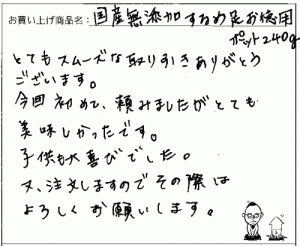 お買い上げ商品名：国産無添加するめ足お徳用
ポット240g
とてもスムーズな取り引きありがとう
ございます。
今回初めて、頼みましたがとても
美味しかったです。
子供も大喜びでした。
又、注文しますのでその際は
よろしくお願いします。